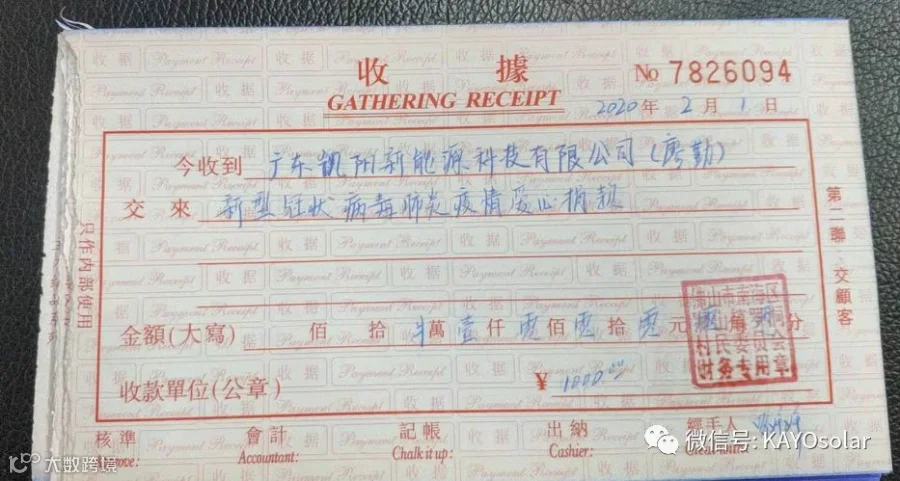 收據
GATHERING RECEIPT
No 7826094
2020年2月1日
今收到 广东凯阳新能源科技有限公司(廖勤)
交來 新型冠状病毒肺炎疫情爱心捐款
金額(大寫) 佰 拾 萬壹仟零佰零拾零元 角 分
佛山市南海区
村民委员会
财务专用章
收款單位(公章)
¥ 1000.00
核準 會計 記帳 出納 經手人
Approve: Accountant: Chalk it up: Cashier:
第二聯:交顧客
只作内部使用
微信号: KAYOsolar
大数跨境